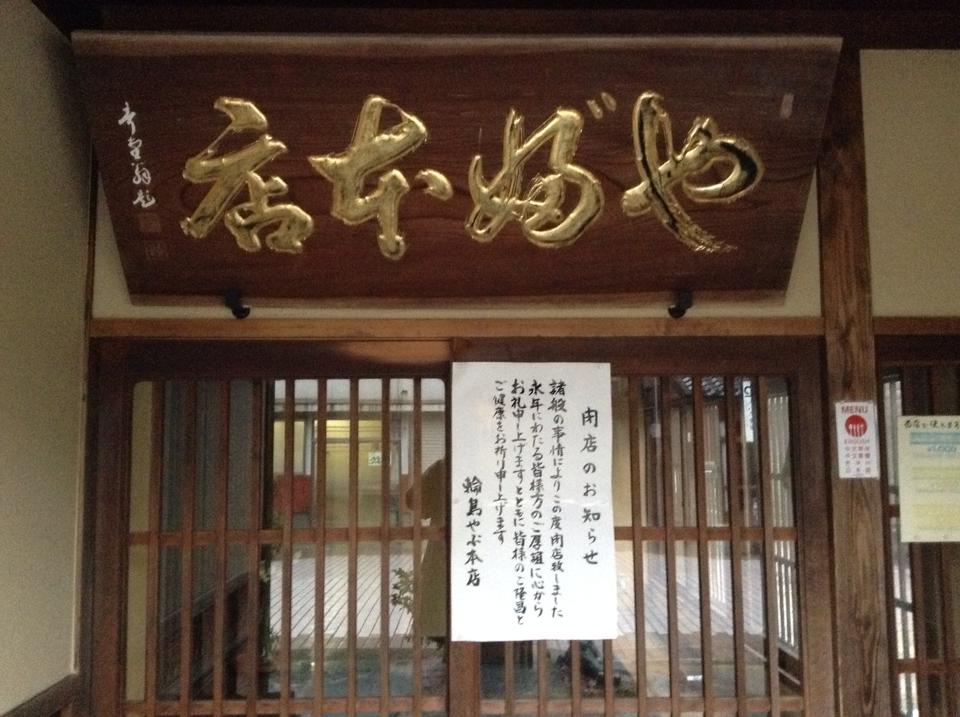 やぶ本店
閉店のお知らせ
諸般の事情によりこの度閉店致しました
永年にわたる皆様方のご厚誼に心から
お礼申し上げますとともに皆様のご隆昌と
ご健康をお祈り申し上げます
輪島やぶ本店
MENU
ENGLISH